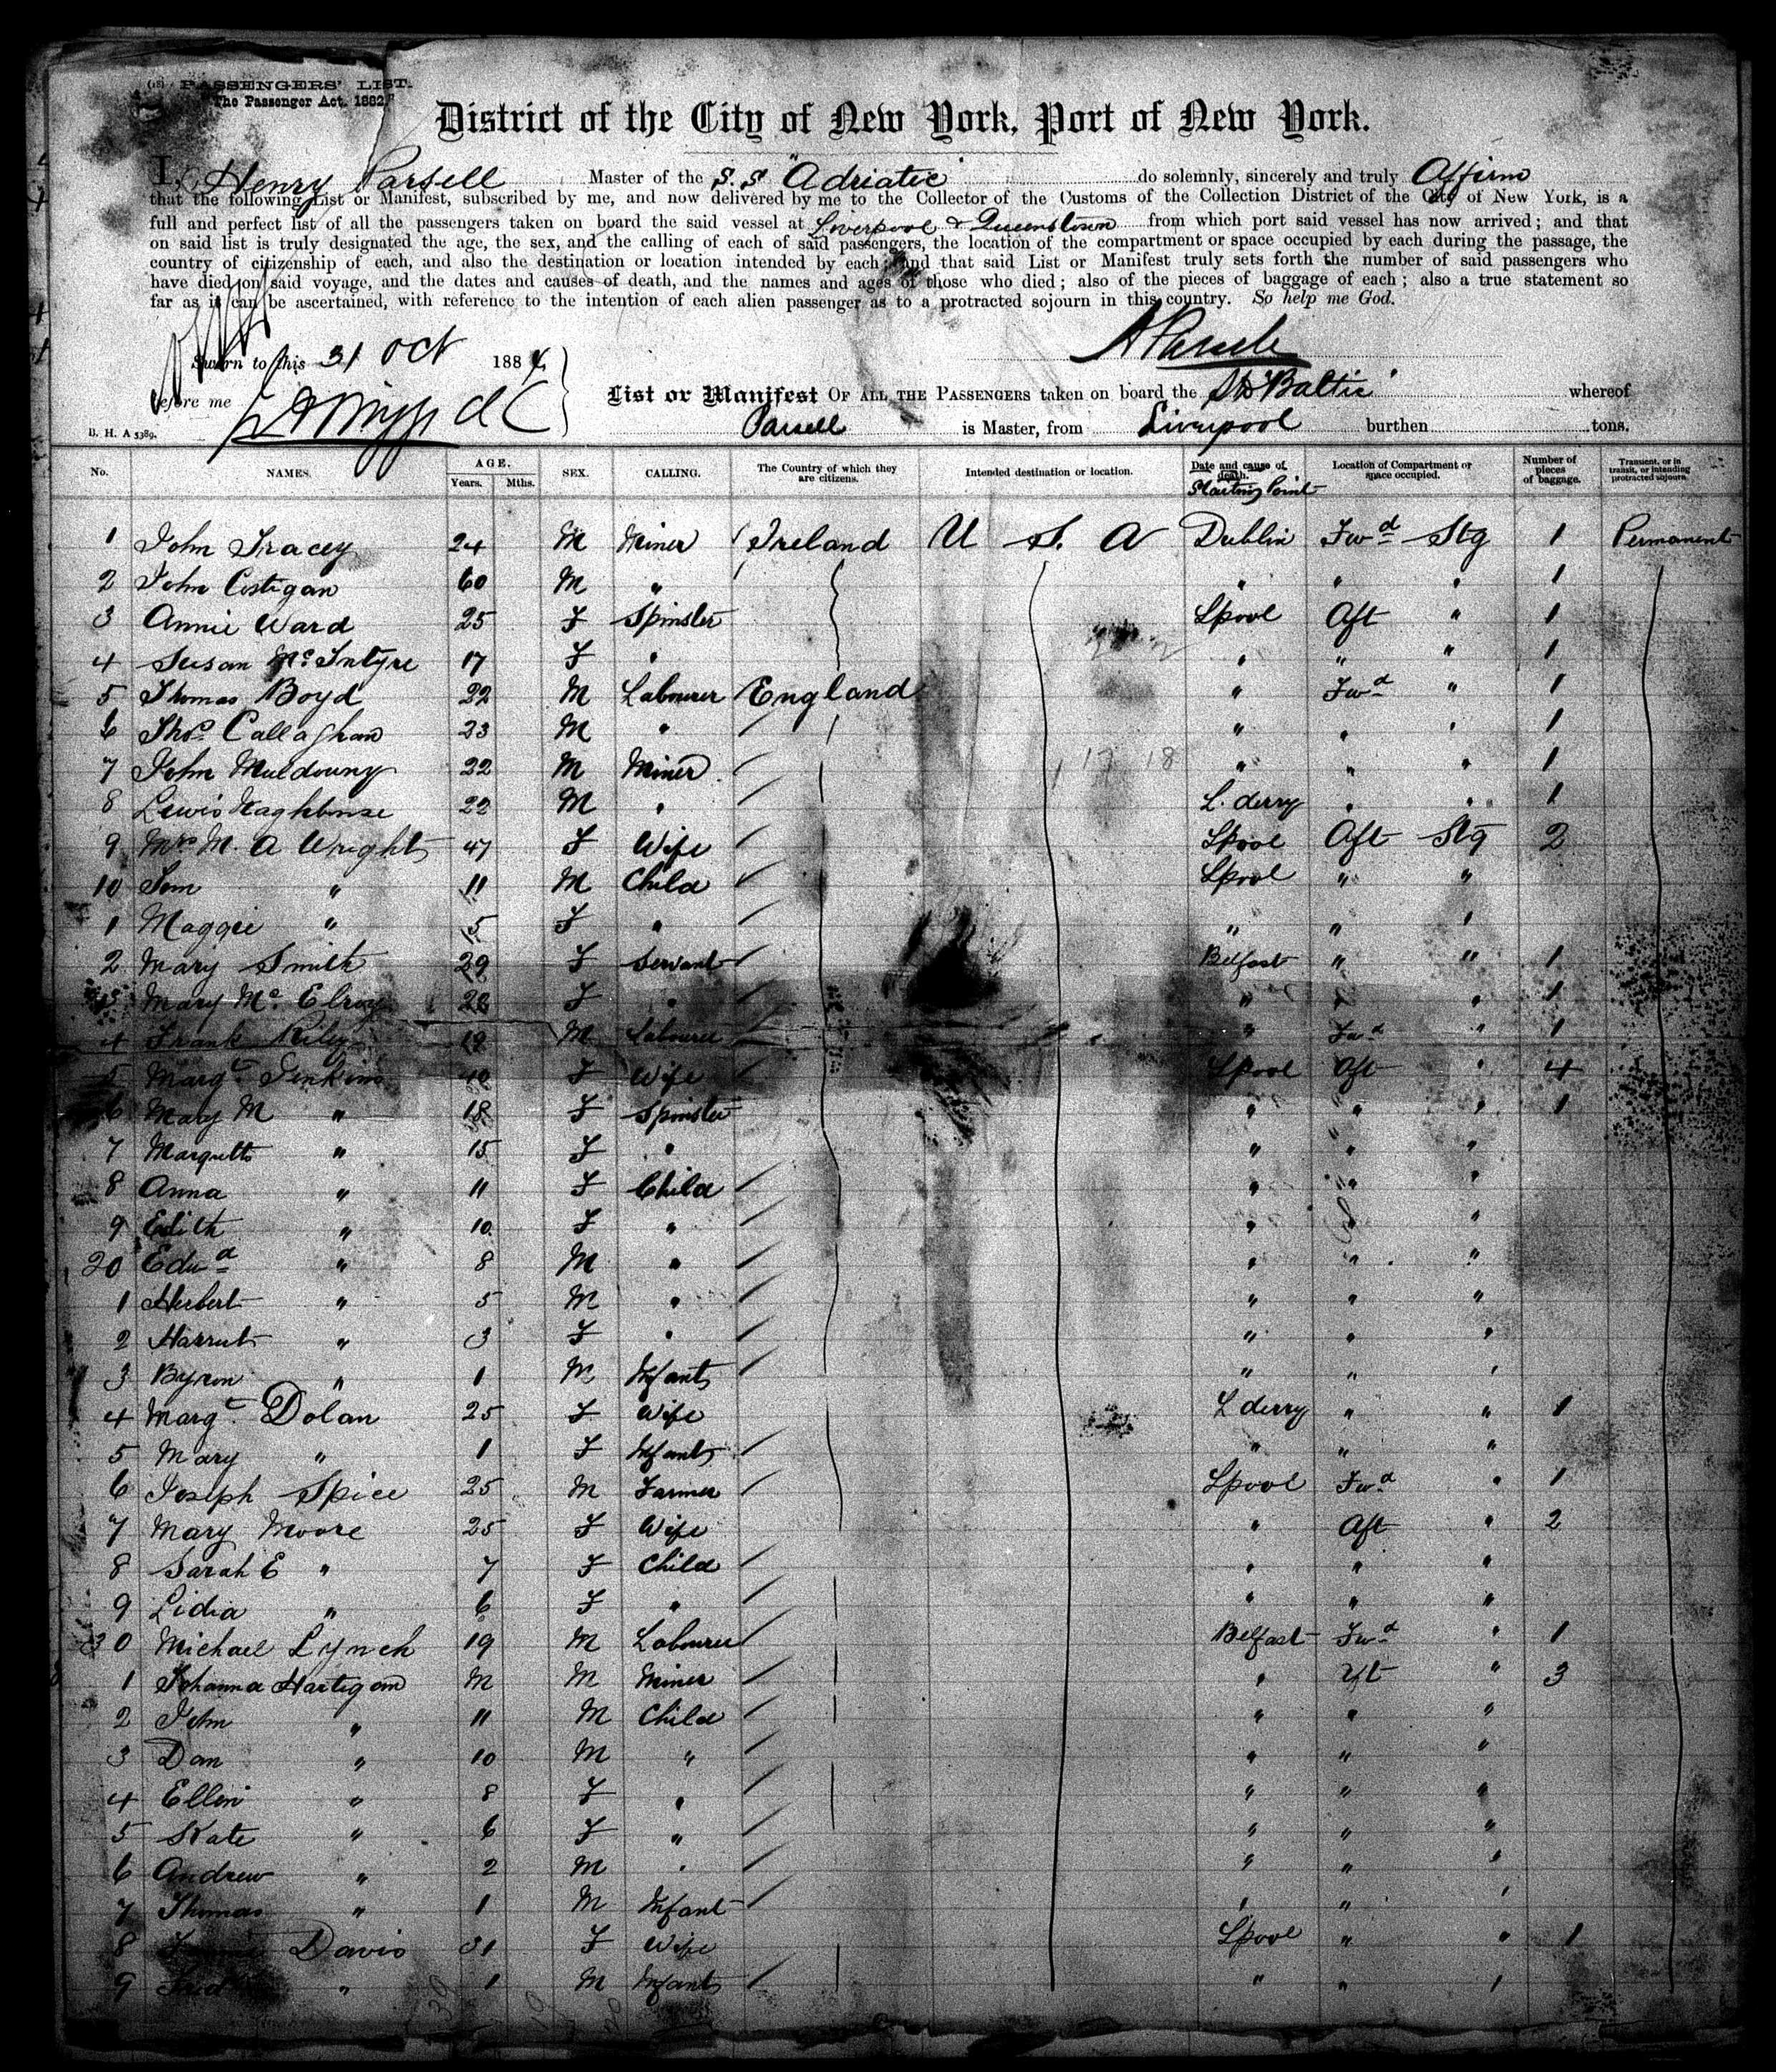 (18) PASSENGERS' LIST.
The Passenger Act. 1882.
District of the City of New York, Port of New York.
I, Henry Parsell Master of the S.S "Adriatic" do solemnly, sincerely and truly Affirm
that the following List or Manifest, subscribed by me, and now delivered by me to the Collector of the Customs of the Collection District of the City of New York, is a
full and perfect list of all the passengers taken on board the said vessel at Liverpool & Queenstown from which port said vessel has now arrived; and that
on said list is truly designated the age, the sex, and the calling of each of said passengers, the location of the compartment or space occupied by each during the passage, the
country of citizenship of each, and also the destination or location intended by each; and that said List or Manifest truly sets forth the number of said passengers who
have died on said voyage, and the dates and causes of death, and the names and ages of those who died; also of the pieces of baggage of each; also a true statement so
far as it can be ascertained, with reference to the intention of each alien passenger as to a protracted sojourn in this country. So help me God.
Sworn to this 31 Oct 1884
before me
List or Manifest OF ALL THE PASSENGERS taken on board the SS "Baltic" whereof
B. H. A 5389. Parsell is Master, from Liverpool burthen tons.
No. NAMES. AGE. Years. Mths. SEX. CALLING. The Country of which they are citizens. Intended destination or location. Date and cause of death. Starting Point Location of Compartment or space occupied. Number of pieces of baggage. Transient, or in transit, or intending protracted sojourn.
1 John Tracey 24 M Miner Ireland U S. A Dublin Fwd Stg 1 Permanent
2 John Costigan 60 M " " " " 1
3 Annie Ward 25 F Spinster Lpool Aft " 1
4 Susan McIntyre 17 F " " " " 1
5 Thomas Boyd 22 M Labourer England " Fwd " 1
6 Thos Callaghan 23 M " " " " 1
7 John Muldouny 22 M Miner " " " 1
8 Lewis 22 M " L. derry " " 1
9 Mrs M. A Wright 47 F Wife Lpool Aft Stg 2
10 Tom " 11 M Child Lpool " "
1 Maggie " 5 F " " " "
2 Mary Smith 29 F Servant Belfast " " 1
3 Mary Mc Elroy 22 F " " " " 1
4 Frank Riley 19 M Labourer " Fwd " 1
5 Margt Jenkins 40 F Wife Lpool Aft " 4
6 Mary M " 18 F Spinster " " " 1
7 Margretta " 15 F " " " "
8 Anna " 11 F Child " " "
9 Edith " 10 F " " " "
20 Edwd " 8 M " " " "
1 Herbert " 5 M " " " "
2 Harriet " 3 F " " " "
3 Byron " 1 M Infant " " "
4 Margt. Dolan 25 F Wife L derry " " 1
5 Mary " 1 F Infant " " "
6 Joseph Spice 25 M Farmer Lpool Fwd " 1
7 Mary Moore 25 F Wife " Aft " 2
8 Sarah E " 7 F Child " " "
9 Lidia " 6 F " " " "
30 Michael Lynch 19 M Labourer Belfast Fwd " 1
1 Johanna Hartigan M M Miner " Aft " 3
2 John " 11 M Child " " "
3 Dan " 10 M " " " "
4 Ellin " 8 F " " " "
5 Kate " 6 F " " " "
6 Andrew " 2 M " " " "
7 Thomas " 1 M Infant " " "
8 Davis 31 F Wife Lpool " " 1
9 Fred " 1 M Infant " " "